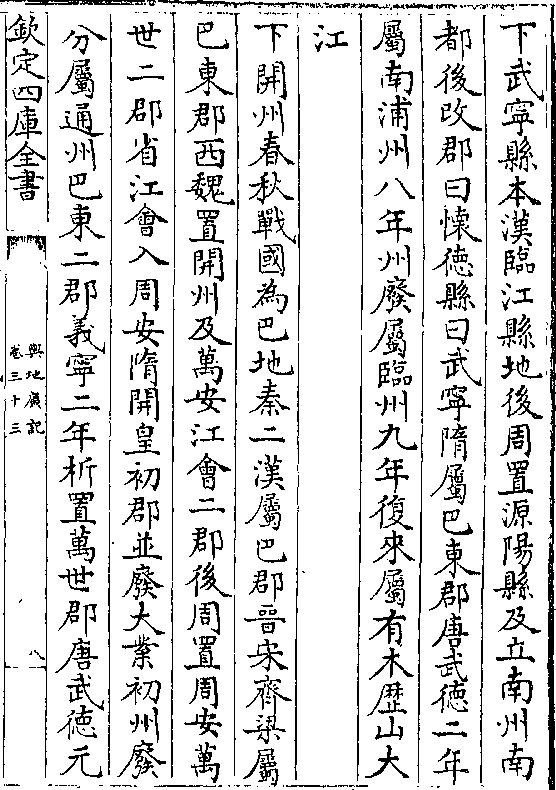 下武寧縣本漢臨江縣地後周置源陽縣及立南州南
都後改郡曰懐徳縣曰武寧隋屬巴東郡唐武徳二年
屬南浦州八年州廢屬臨州九年復來屬有木歴山大
江
下開州春秋戰國為巴地秦二漢屬巴郡晉宋齊梁屬
巴東郡西魏置開州及萬安江會二郡後周置周安萬
世二郡省江會入周安隋開皇初郡並廢大業初州廢
分屬通州巴東二郡義寧二年析置萬世郡唐武徳元
欽定四庫全書
輿地廣記
卷三十三
八